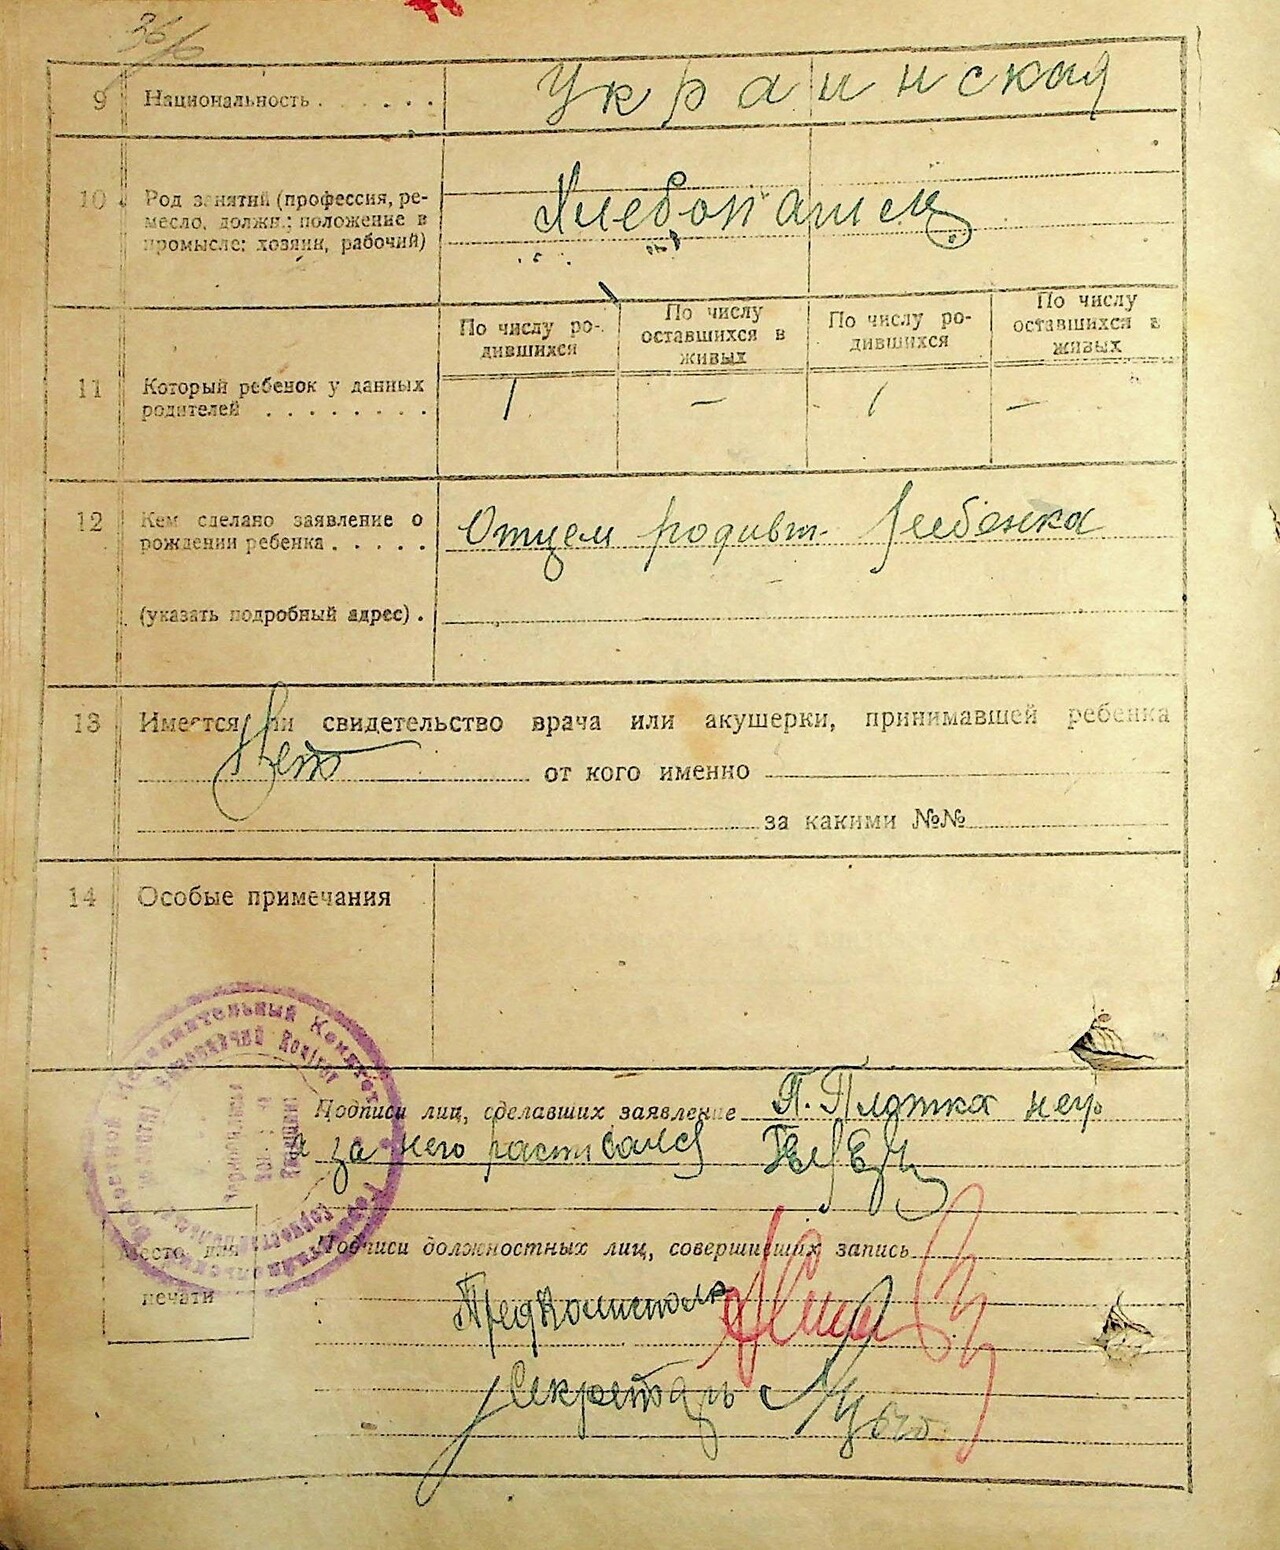 36/6
9 Национальность . . . . . . Украинская
10 Род занятий (профессия, ре-
месло, должн.; положение в
промысле: хозяин, рабочий)
Хлебопашец
По числу ро-
дившихся
По числу
оставшихся в
живых
По числу ро-
дившихся
По числу
оставшихся в
живых
11 Который ребенок у данных
родителей . . . . . . . .
1 — 1 —
12 Кем сделано заявление о
рождении ребенка . . . . .
Отцем родивш. ребенка
(указать подробный адрес) .
13 Имеется ли свидетельство врача или акушерки, принимавшей ребенка
Нет от кого именно
за какими №№
14 Особые примечания
Исполнительный Комитет
Подписи лиц, сделавших заявление П. Плотка негр
а за него растисался
Место для
печати
Подписи должностных лиц, совершивших запись
Секретарь